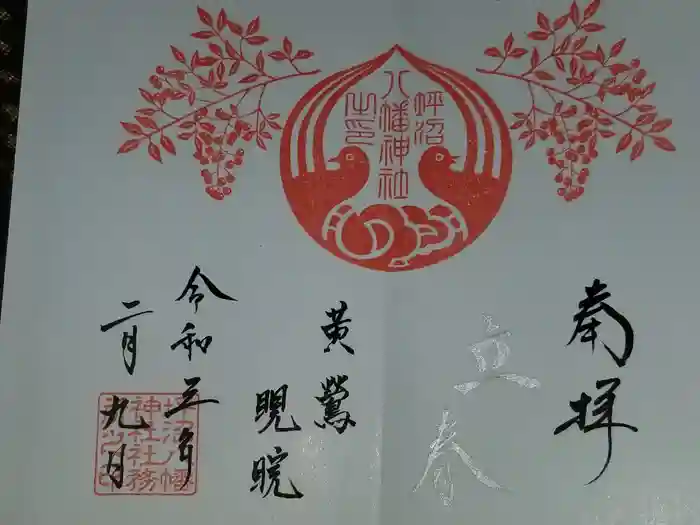 坪沼
八幡神社
之印
奉拝
立春
黄鶯
睍睆
令和三年
二月
九日
坪沼八幡
神社社務
所之印